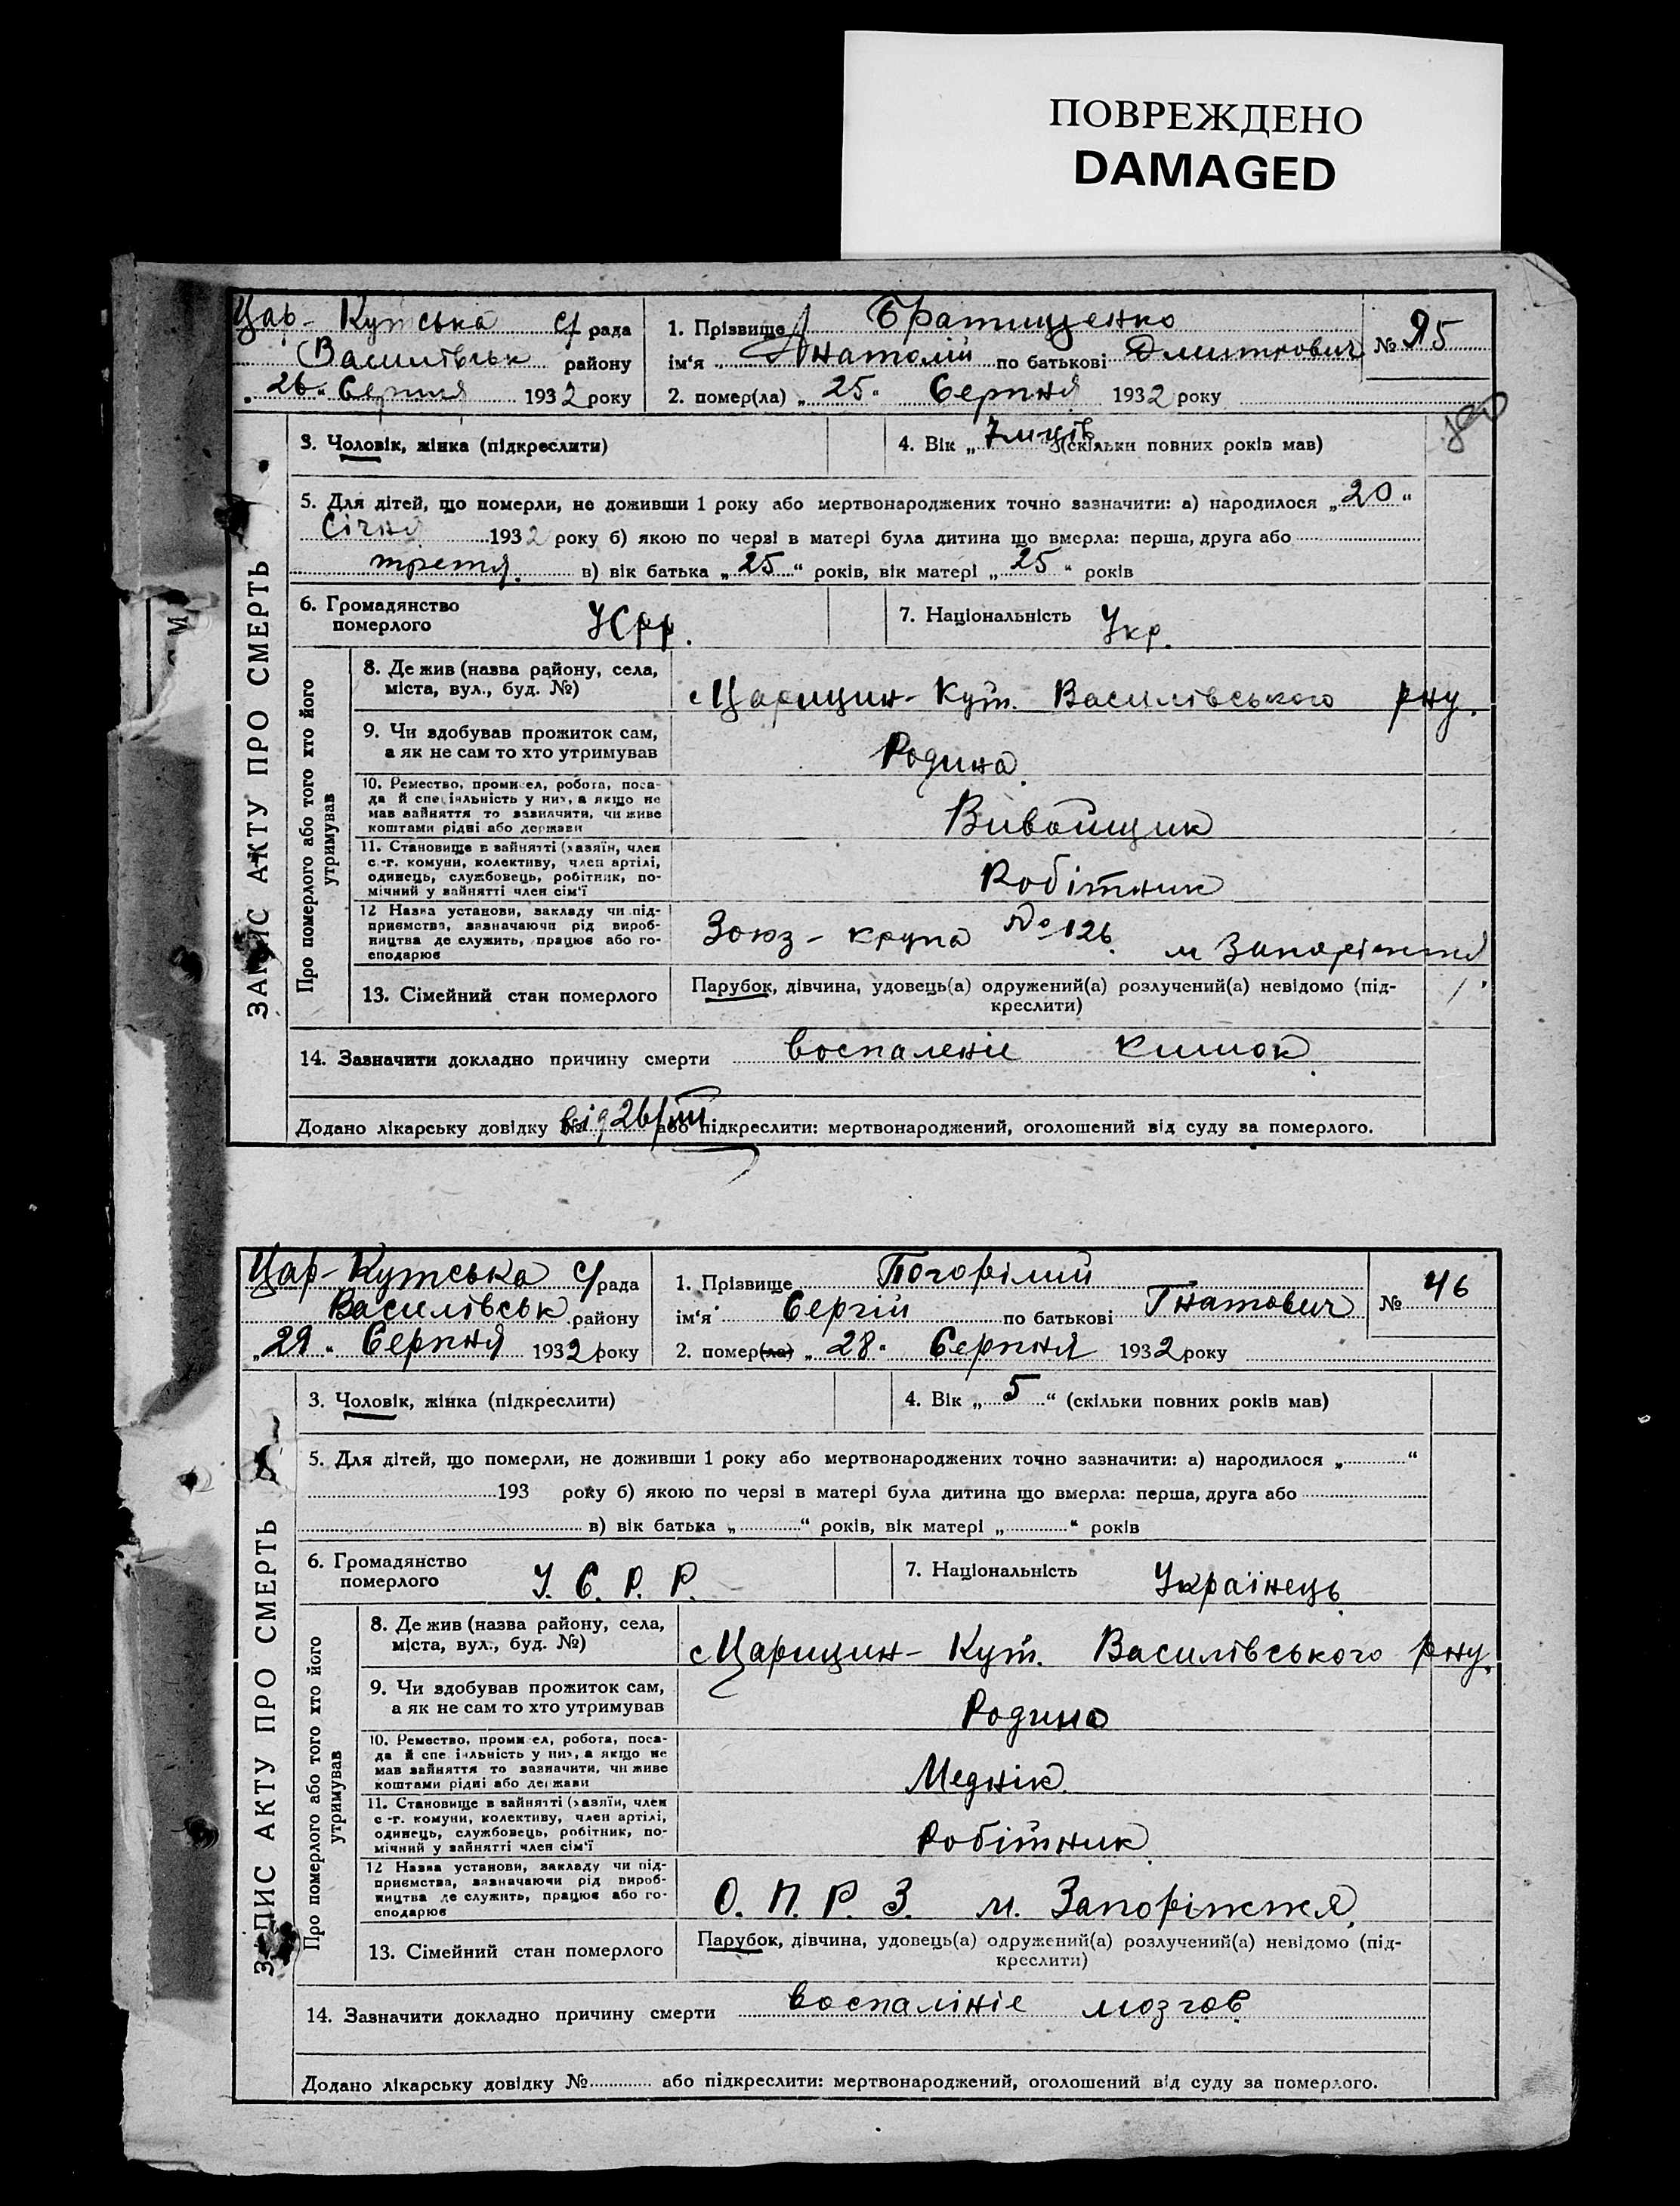 ПОВРЕЖДЕНО
DAMAGED
Цар-Кутська с/рада
Василівськ району
„26“ Серпня 1932 року
1. Прізвище Братищенко
ім‘я Анатолій по батькові Дмитрович
№ 45
2. помер(ла) „25“ Серпня 1932 року
ЗАПИС АКТУ ПРО СМЕРТЬ
3. Чоловік, жінка (підкреслити)
4. Вік „7 м-ців (скільки повних років мав)
5. Для дітей, що померли, не доживши 1 року або мертвонароджених точно зазначити: а) народилося „20“
Січня 1932 року б) якою по черзі в матері була дитина що вмерла: перша, друга або
третя. в) вік батька „25“ років, вік матері „25“ років
6. Громадянство
померлого
УСРР.
7. Національність Укр.
Про померлого або того хто його
утримував
8. Де жив (назва району, села,
міста, вул., буд. №)
Царицин-Кут. Василівського р-ну.
9. Чи здобував прожиток сам,
а як не сам то хто утримував
Родина.
10. Ремество, промисел, робота, поса-
да й спеціяльність у них, а якщо не
мав зайняття то зазначити, чи живе
коштами рідні або держави
11. Становище в зайнятті (хазяїн, член
с.-г. комуни, колективу, член артілі,
одинець, службовець, робітник, по-
мічний у зайнятті член сім‘ї
Робітник
12 Назва установи, закладу чи під-
приємства, зазначаючи рід вироб-
ництва де служить, працює або го-
сподарює
Зоюз-крупа №126. м Запоріжжя
13. Сімейний стан померлого
Парубок, дівчина, удовець(а) одружений(а) розлучений(а) невідомо (під-
креслити)
14. Зазначити докладно причину смерти воспаленіе кишок.
Додано лікарську довідку № від 26/VIII або підкреслити: мертвонароджений, оголошений від суду за померлого.
Цар-Кутська с/рада
Василівськ району
„29“ Серпня 1932 року
1. Прізвище Погорілий
ім‘я Сергій по батькові Гнатович
№ 46
2. помер(ла) „28“ Серпня 1932 року
ЗАПИС АКТУ ПРО СМЕРТЬ
3. Чоловік, жінка (підкреслити)
4. Вік „5“ (скільки повних років мав)
5. Для дітей, що померли, не доживши 1 року або мертвонароджених точно зазначити: а) народилося „ “
193 року б) якою по черзі в матері була дитина що вмерла: перша, друга або
в) вік батька „ “ років, вік матері „ “ років
6. Громадянство
померлого
У. С. Р. Р.
7. Національність Українець.
Про померлого або того хто його
утримував
8. Де жив (назва району, села,
міста, вул., буд. №)
Царицин-Кут. Василівського р-ну.
9. Чи здобував прожиток сам,
а як не сам то хто утримував
Родина
10. Ремество, промисел, робота, поса-
да й спеціяльність у них, а якщо не
мав зайняття то зазначити, чи живе
коштами рідні або держави
Меднік.
11. Становище в зайнятті (хазяїн, член
с.-г. комуни, колективу, член артілі,
одинець, службовець, робітник, по-
мічний у зайнятті член сім‘ї
Робітник.
12 Назва установи, закладу чи під-
приємства, зазначаючи рід вироб-
ництва де служить, працює або го-
сподарює
О. П. Р. З. м. Запоріжжя.
13. Сімейний стан померлого
Парубок, дівчина, удовець(а) одружений(а) розлучений(а) невідомо (під-
креслити)
14. Зазначити докладно причину смерти воспалініе мозгов.
Додано лікарську довідку № або підкреслити: мертвонароджений, оголошений від суду за померлого.